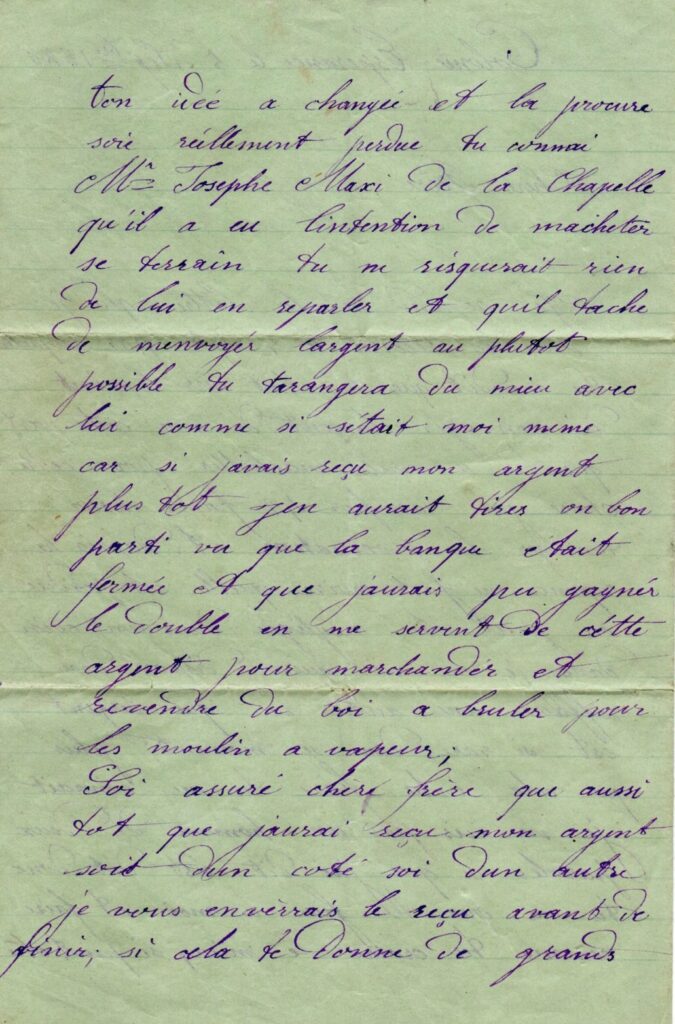 ton idée a changée et la procure
soie réellment perdue tu connai
Mr Josephe Maxi de la Chapelle
qu'il a eu lintention de macheter
se terrain tu ne risquerait rien
de lui en reparler et quil tache
de menvoyér largent au plutot
possible tu tarangera du mieu avec
lui comme si sétait moi meme
car si javais reçu mon argent
plus tot jen aurait tirer on bon
parti vu que la banque était
fermée et que jaurais pu gagnér
le double en me servent de cétte
argent pour marchander et
revendre du boi a bruler pour
les moulin a vapeur,
Soi assuré chere frère que aussi
tot que jaurai reçu mon argent
soit dun coté soi dun autre
je vous enverrais le reçu avant de
finir; si cela te donne de grands